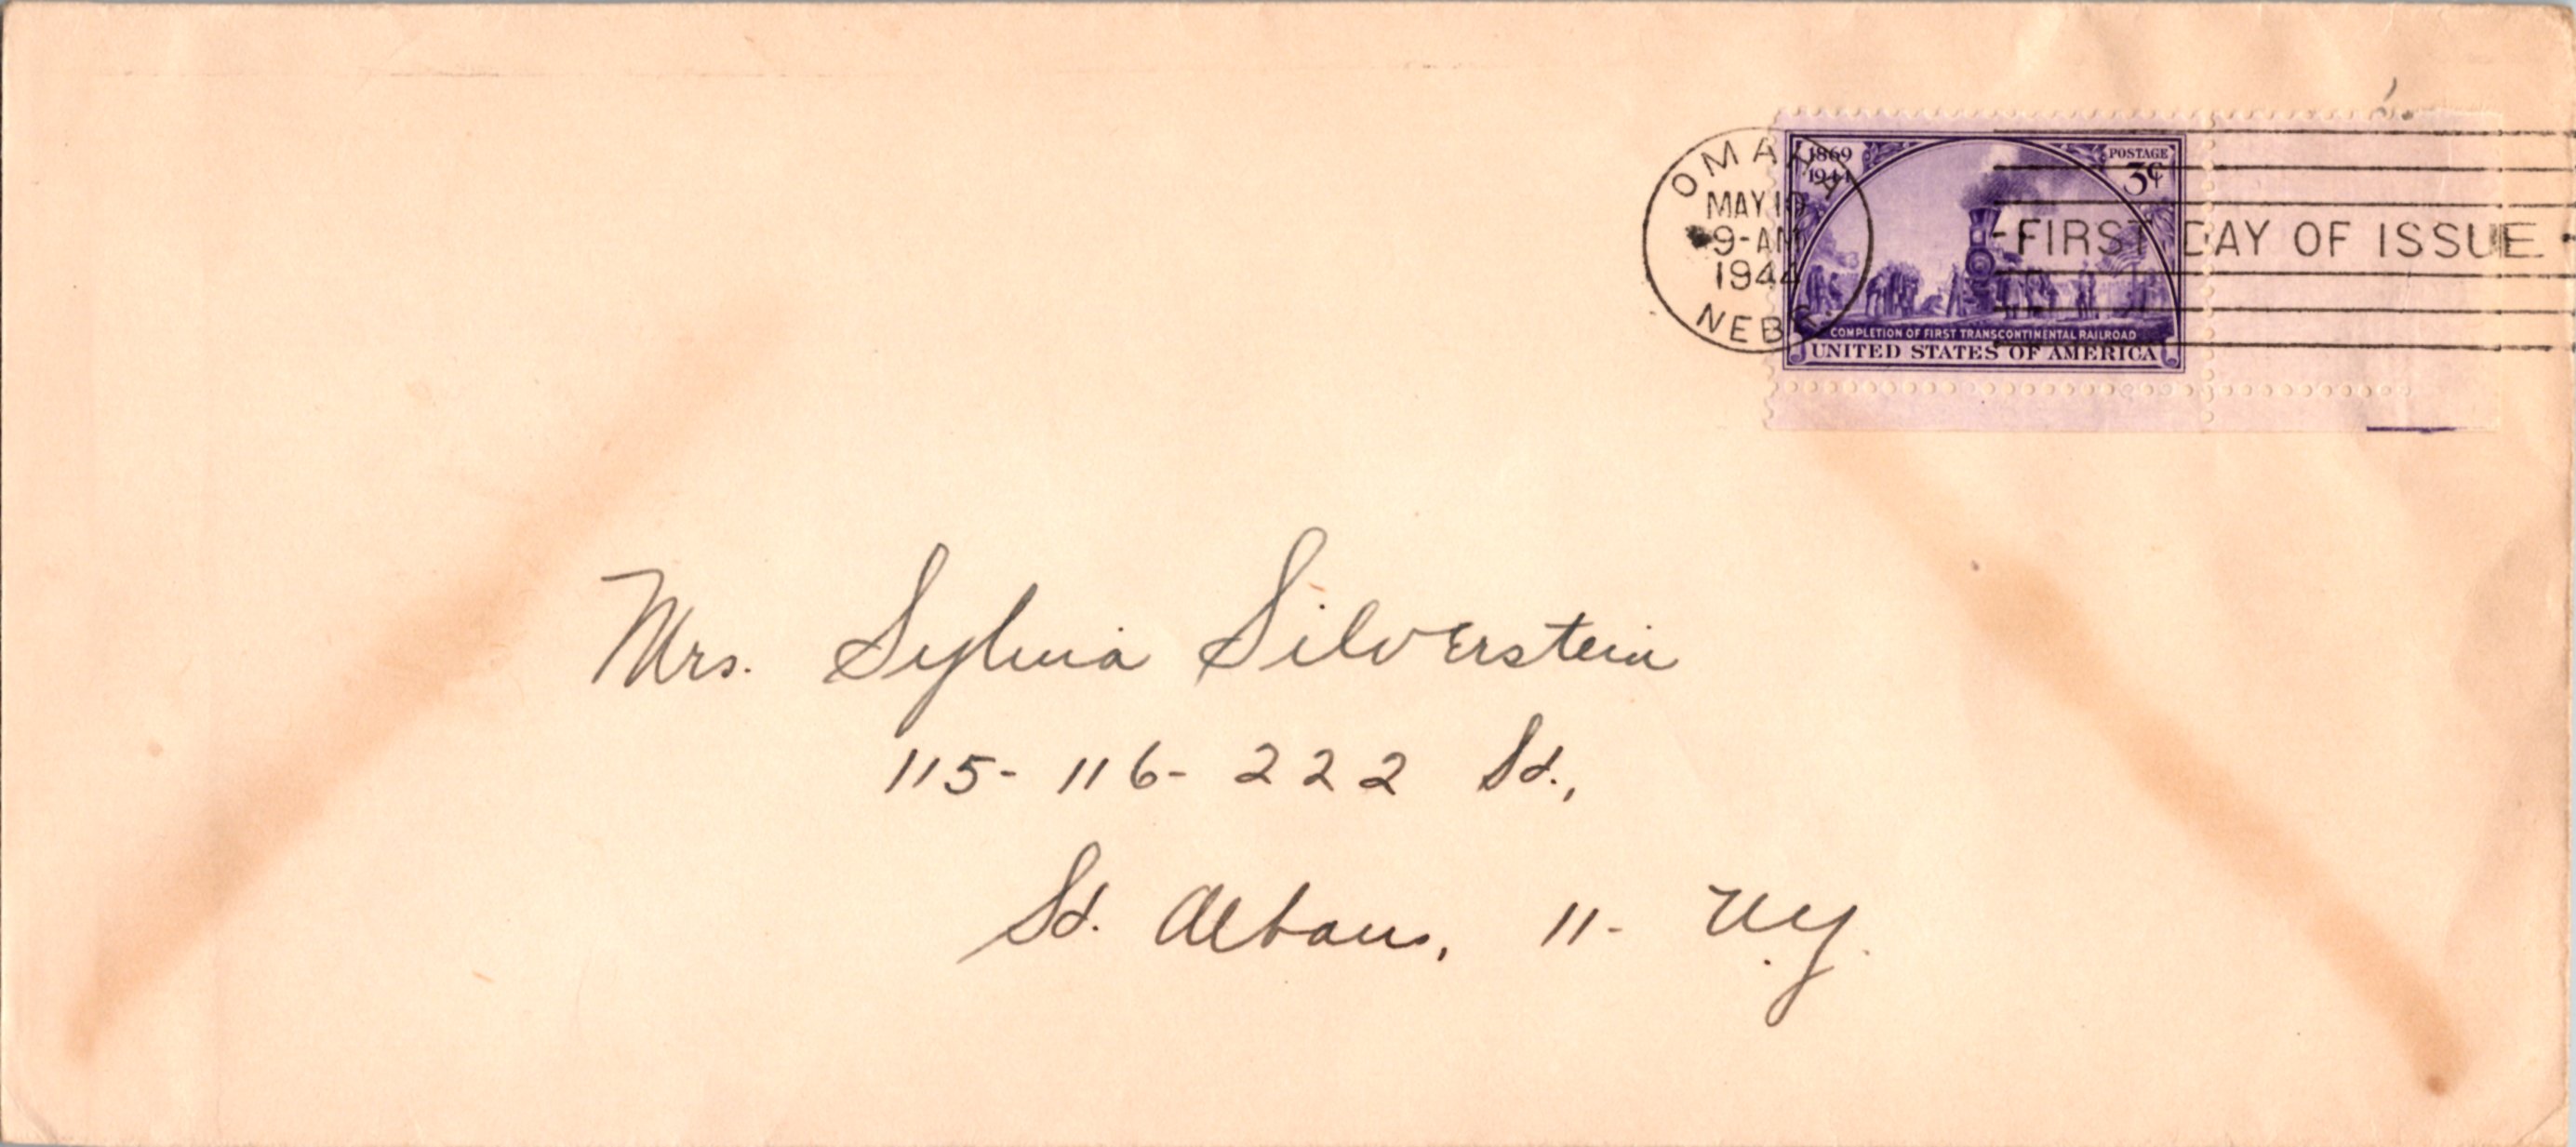 OMAHA
MAY 10
9-AM
1944
NEBR.
FIRST DAY OF ISSUE
1869
1944
POSTAGE
3¢
COMPLETION OF FIRST TRANSCONTINENTAL RAILROAD
UNITED STATES OF AMERICA
Mrs. Sylvia Silverstein
115-116-222 St.,
St. Albans, 11- N.Y.